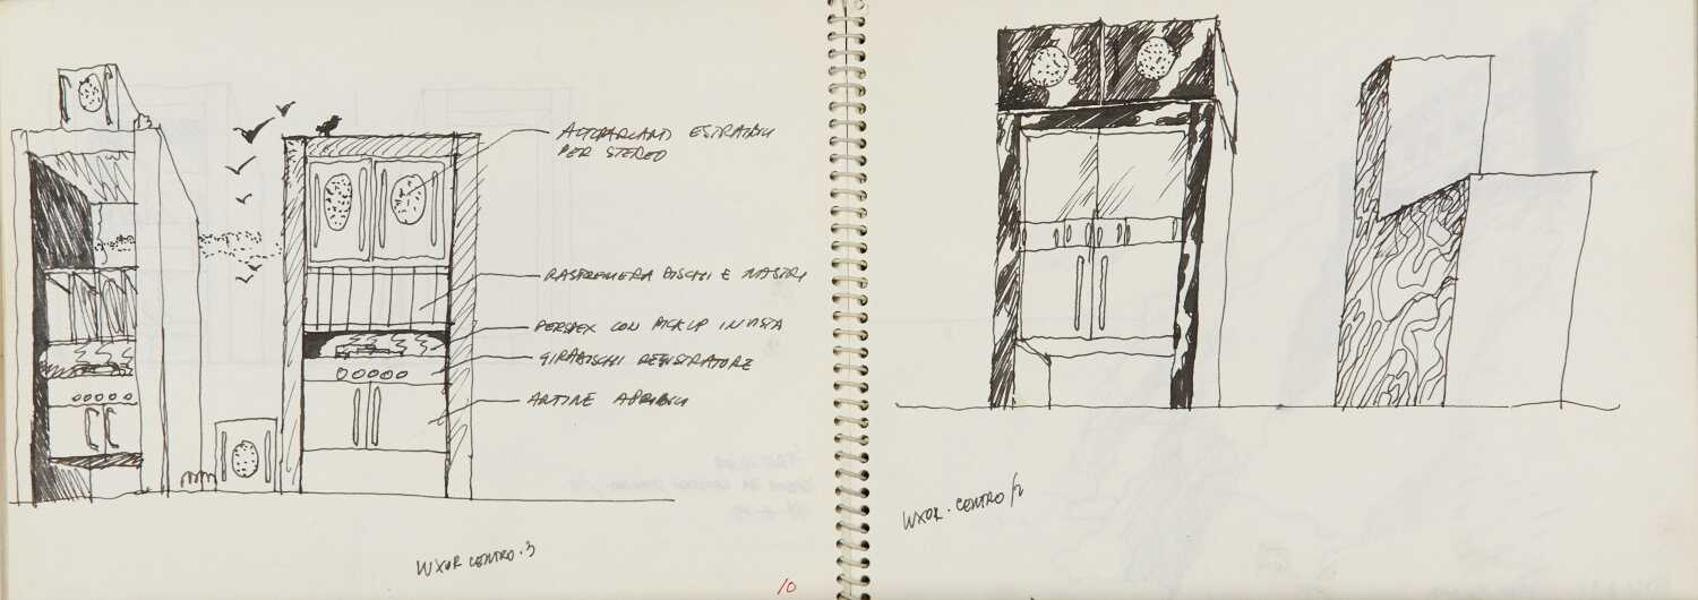 ALTOPARLANTI ESTRAIBILI
PER STEREO
RASTRELLIERA DISCHI E NASTRI
PERSPEX CON PICK UP IN VISTA
GIRADISCHI REGISTRATORE
ANTINE APRIBILI
LUXOR CENTRO.3
10
LUXOR.CENTRO/2